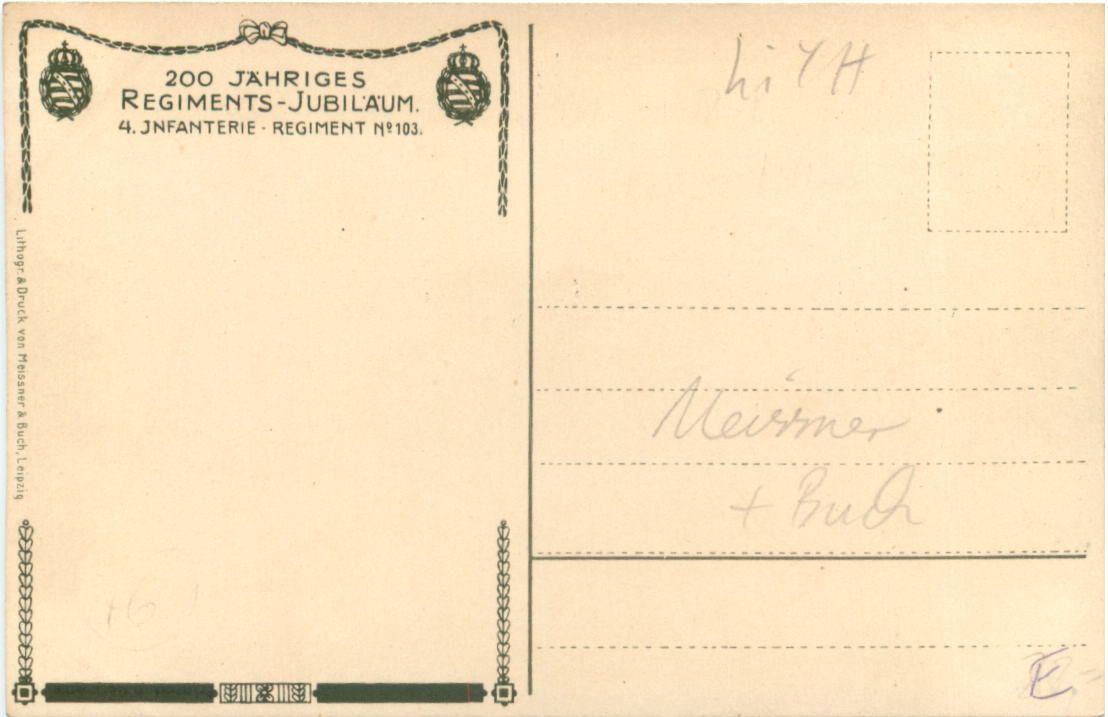 200 JÄHRIGES
REGIMENTS-JUBILÄUM.
4. JNFANTERIE - REGIMENT No 103.
Lithogr. & Druck von Meissner & Buch, Leipzig
Meissner
+ Buch